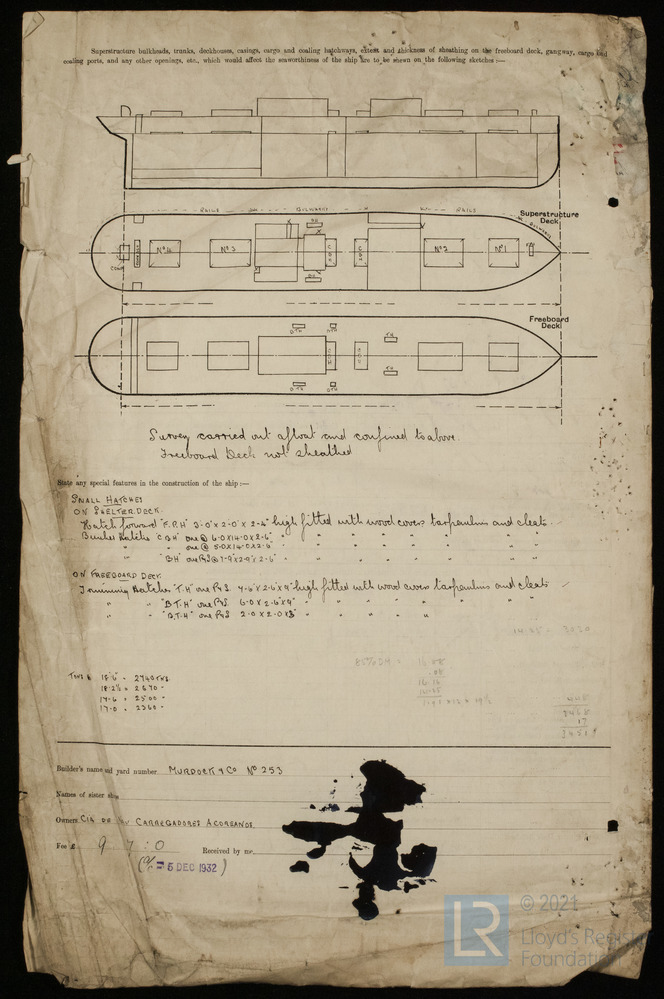 Superstructure bulkheads, trunks, deckhouses, casings, cargo and coaling hatchways, extent and thickness of sheathing on the freeboard deck, gangway, cargo and
coaling ports, and any other openings, etc., which would affect the seaworthiness of the ship are to be shewn on the following sketches :—
RAILS BULWARKS RAILS
Superstructure
Deck.
Nº4 Nº3 Nº2 Nº1
Freeboard
Deck
Survey carried out afloat and confined to above.
Freeboard Deck not sheathed
State any special features in the construction of the ship :—
SMALL HATCHES
ON SHELTER DECK.
Hatch forward "F.P.H" 3-0" x 2-0" x 2-4" high fitted with wood covers tarpaulins and cleats.
Bunker Hatches "C B H" one @ 6-0 x 14-0 x 2-6" " " " " " "
" " one @ 5-0 x 14-0 x 2-6" " " " " " "
" "BH" one P&S @ 7-9 x 2-9 x 2-6" " " " " " "
ON FREEBOARD DECK.
Trimming Hatches "T.H" one P&S. 4-6 x 2-6 x 9" high fitted with wood covers tarpaulins and cleats
" " "B.T.H" one P&S. 6-0 x 2-6 x 9" " " " " " "
" " "B.T.H" one P&S 2-0 x 2-0 x 8" " " " "
18-6 = 2740
18-2½ = 2670 "
17-6 = 2500 "
17-0 = 2360 "
Builder's name and yard number MURDOCK & Co Nº 253
Names of sister ships
Owners CIA DE CARREGADORES ACOREANOS.
Fee £ 9 : 7 : 0 Received by me.
5 DEC 1932
LR © 2021
Lloyd's Register
Foundation